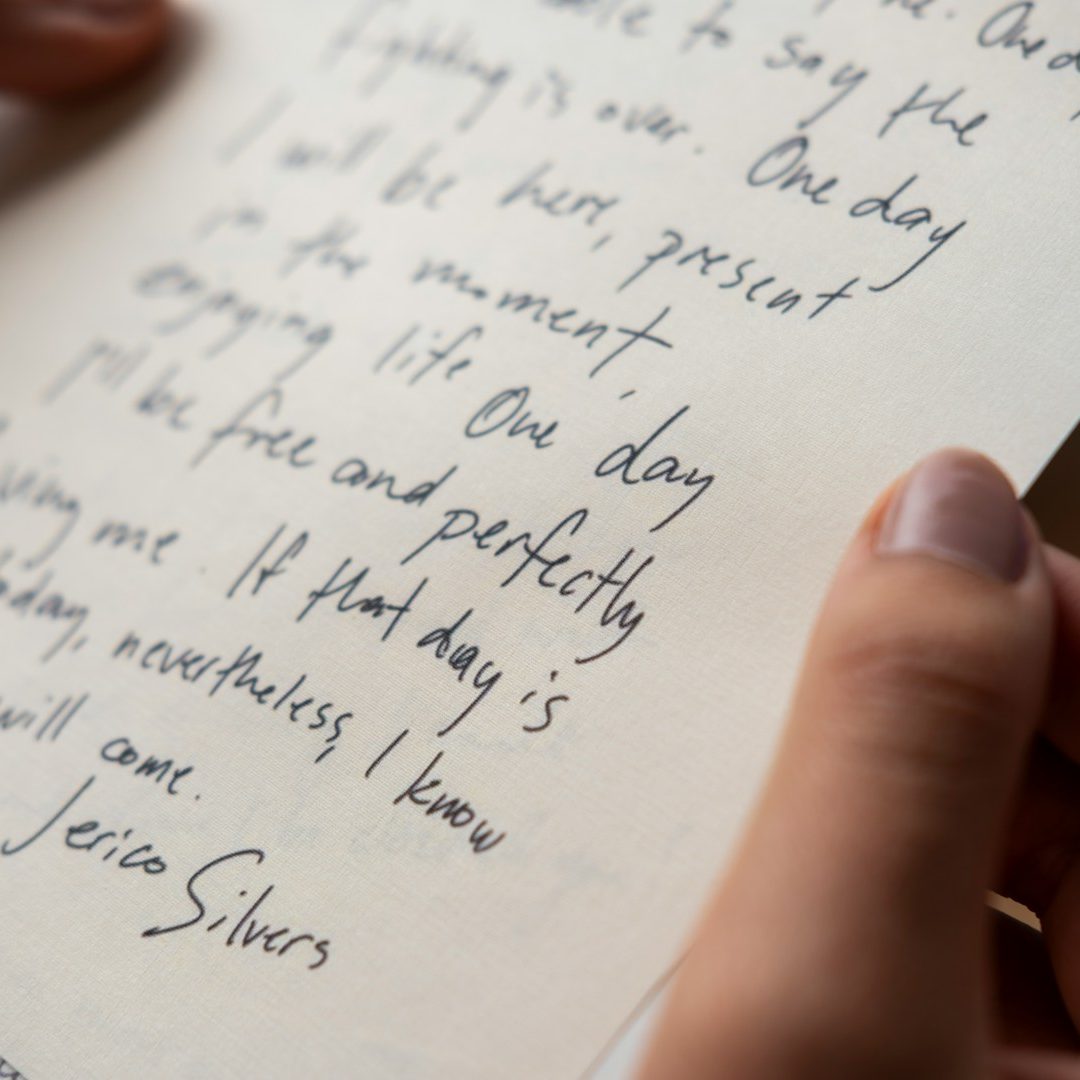 One
to say the
fighting is over. One day
I will be here, present
in the moment,
enjoying life One day
I'll be free and perfectly
me. If that day is
nevertheless, I know
will come.
Jerico Silvers